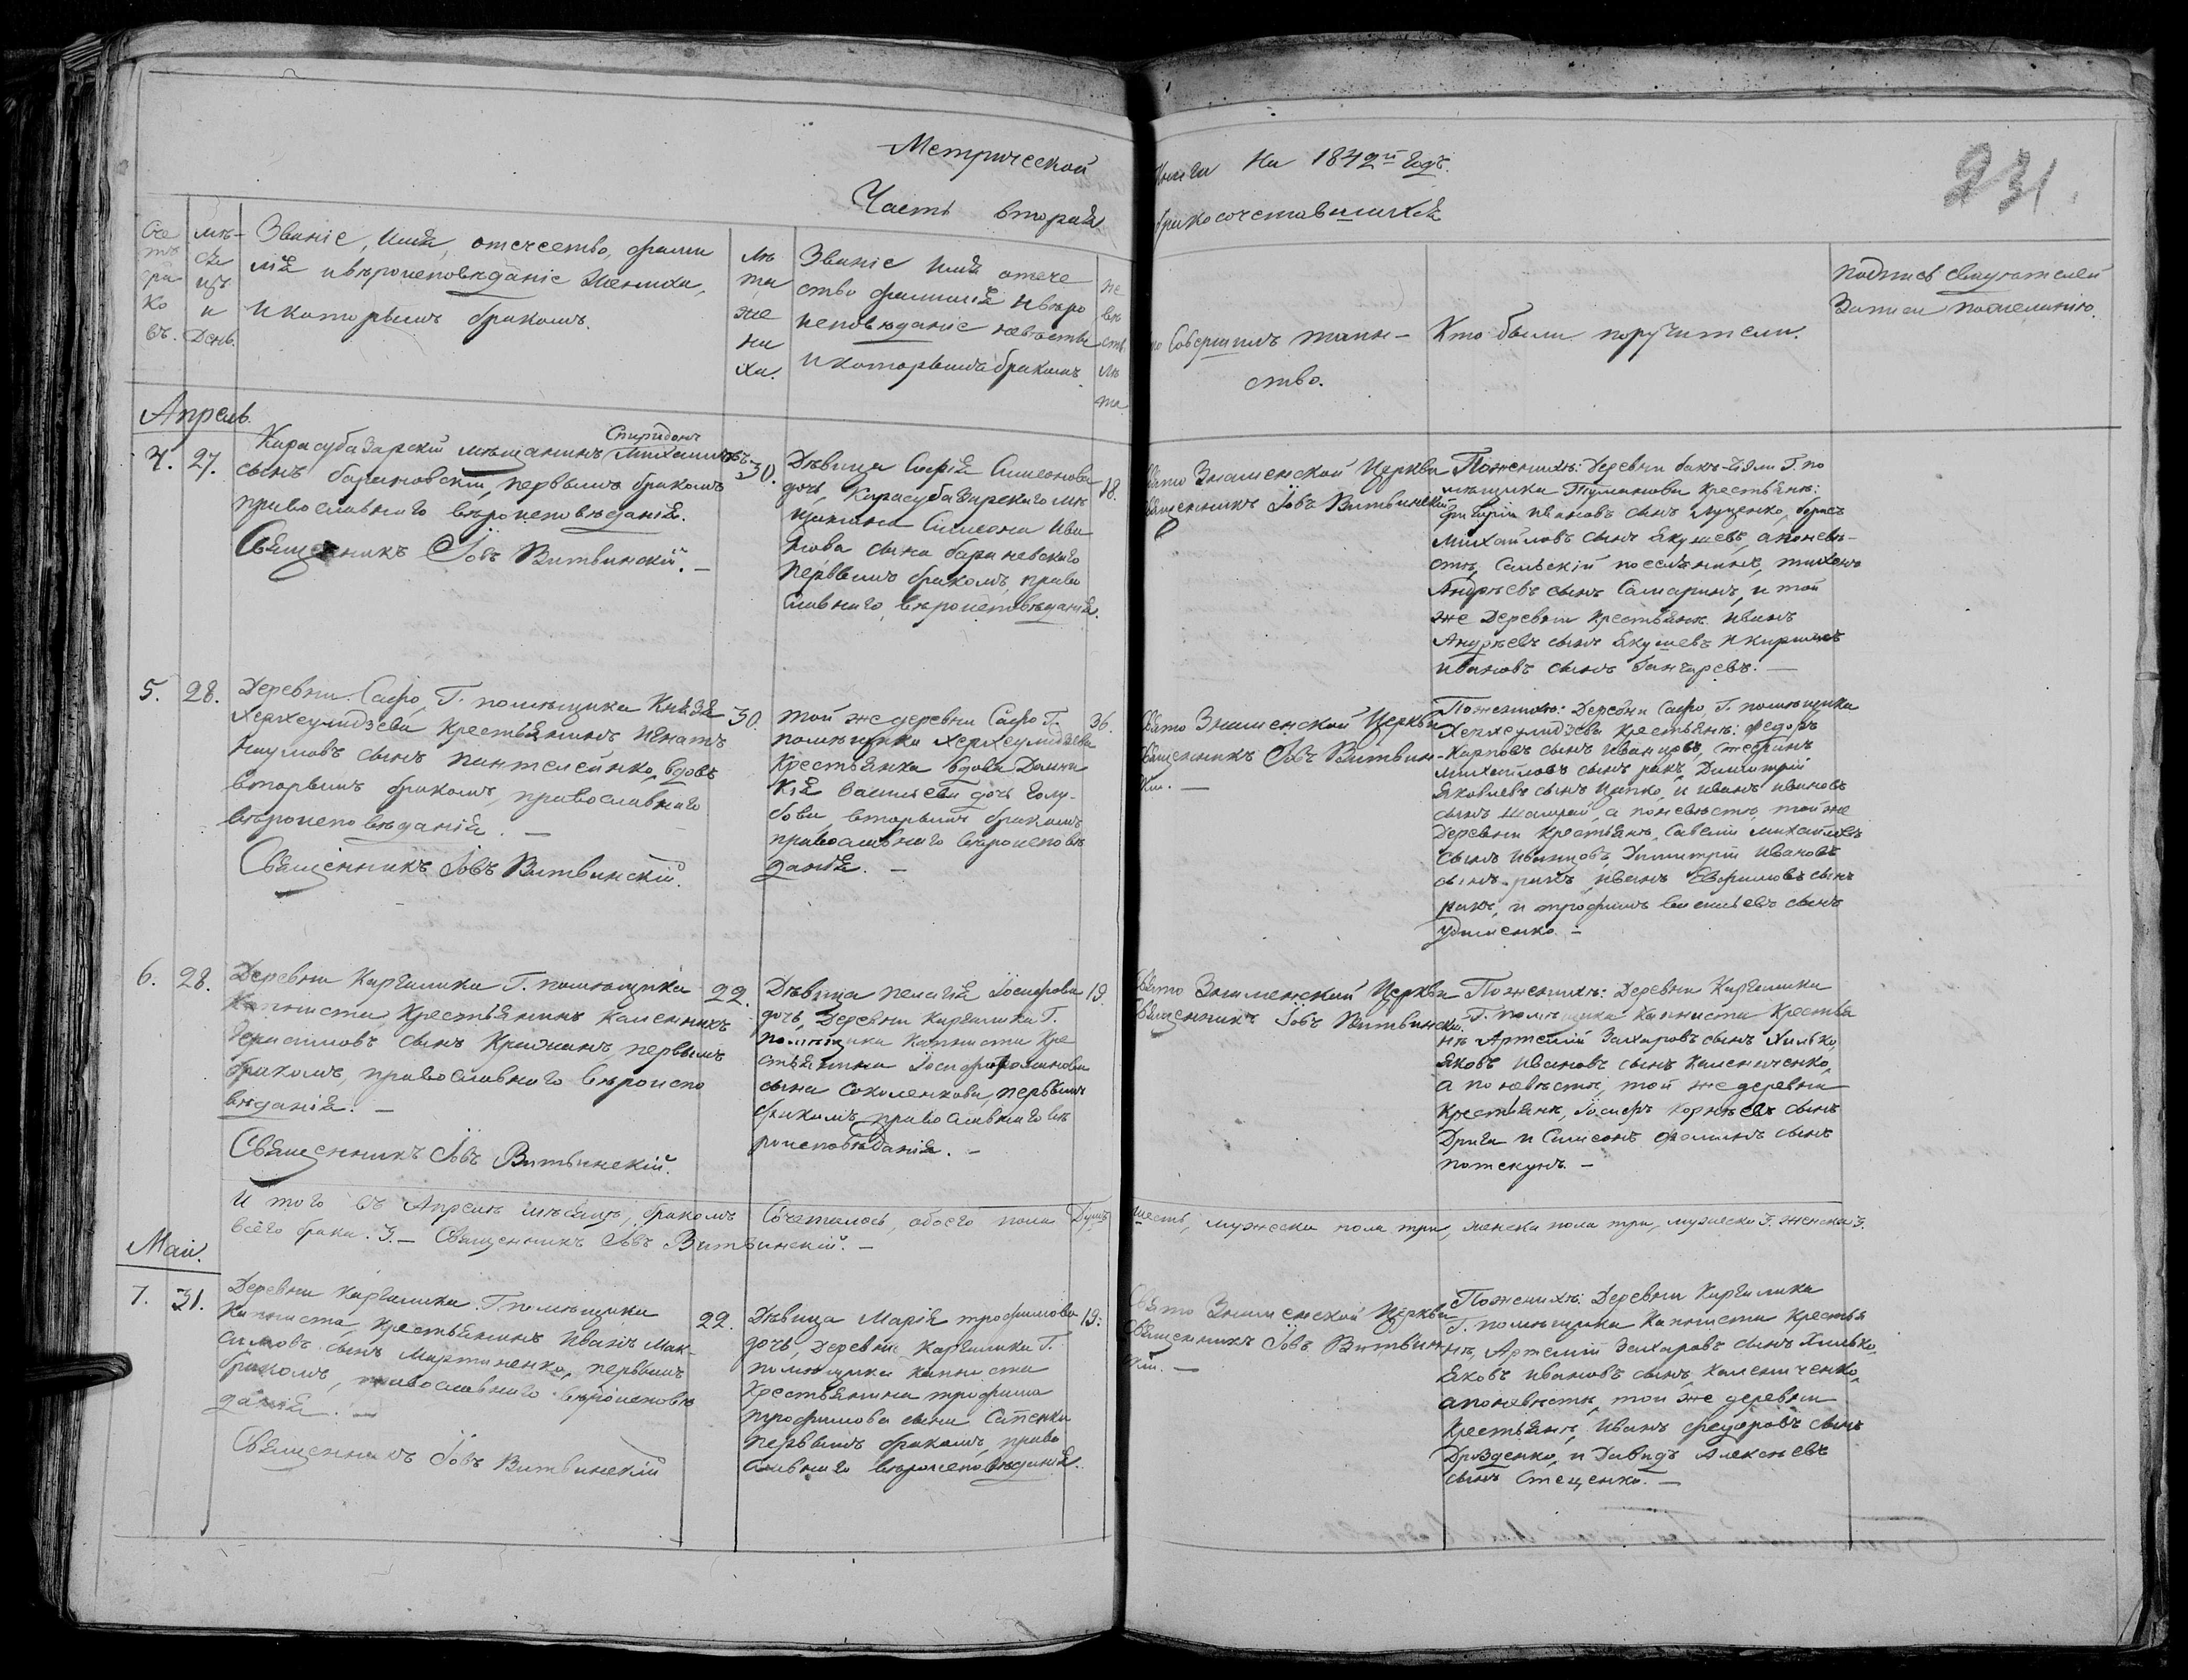 Метрической
Часть вторая
книги на 1842й годъ.
бракосочетавшихся
231.
Сче
тъ
бра
ко
въ.
мѣ-
ся
цъ
и
День.
Званіе, имя, отечество, фами
лія и вѣроисповѣданіе Жениха,
и которымъ бракомъ.
лѣ
та
же
ни
ха.
Званіе имя отече
ство фамилія и вѣро
исповѣданіе невѣсты
и которымъ бракомъ
не
вѣ
сты
лѣ
та
Совершилъ таин-
ство.
Кто были поручители.
подпись свидѣтелей
Записи по желанію.
Апрель.
4. 27.
Спиридонъ
Карасубазарскій мѣщанинъ Михайловъ
сынъ барановскій, первымъ бракомъ
православнаго вѣроисповѣданія.
Священникъ Іовъ Витвинскій. —
30.
Дѣвица Софія Симеонова
дочь, Карасубазарскаго мѣ
щанина Симеона Ива
нова сына барановскаго
первымъ бракомъ, право
славнаго вѣроисповѣданія.
18.
Свято Знаменской Церкви
Священникъ Іовъ Витвинскій
По женихѣ: Деревни бакъ-Г. по
мѣщика Туманова крестьянѣ:
Григорій Ивановъ сынъ Луценко, борисъ
Михайловъ сынъ Якушевъ, а по невѣ-
стѣ, Сальскій поселянинъ, тихонъ
Андрѣевъ сынъ Самаринъ, и той
же Деревни крестьяне Иванъ
Андрѣевъ сынъ Якушевъ и кирилъ
Ивановъ сынъ Гончаревъ. —
5. 28.
Деревни Сафо, Г. помѣщика Князя
Херхеулидзева крестьянинъ Игнатъ
Наумовъ сынъ Пантелейнко, вдовъ
вторымъ бракомъ, православнаго
вѣроисповѣданія. —
Священникъ Іовъ Витвинскій.
30.
той же деревни Сафо Г.
помѣщика Херхеулидзева
крестьянка вдова Домни
кія Васильева дочь Голу-
бова, вторымъ бракомъ
православнаго вѣроисповѣ
данія. —
36.
Свято Знаменской Церкви
Священникъ Іовъ Витвин-
скій. —
По женихѣ: Деревни Сафо, Г. помѣщика
Херхеулидзева крестьянѣ: Федоръ
Карповъ сынъ Иванцовъ, Стефанъ
Михайловъ сынъ ракъ, Димитрій
Яковлевъ сынъ Цапко, и Иванъ Ивановъ
сынъ, а по невѣстѣ, той же
Деревни крестьянѣ, Савелій Михайловъ
сынъ Иванцовъ, Димитрій Ивановъ
сынъ ракъ, Иванъ Ефимовъ сынъ
ракъ, и трофимъ Васильевъ сынъ
Удименко. —
6. 28.
Деревни Каргалика Г. помѣщика
Капниста, крестьянинъ Калинникъ
Герасимовъ сынъ Крижанъ, первымъ
бракомъ, православнаго вѣроиспо
вѣданія. —
Священникъ Іовъ Витвинскій.
22.
Дѣвица Пелагія Іосифова
дочь, Деревни Каргалика Г.
помѣщика Капниста кре
стьянина Іосифа романова
сына Соколенкова, первымъ
бракомъ, православнаго вѣ
роисповѣданія. —
19.
Свято Знаменской Церкви
Священникъ Іовъ Витвинскій.
По женихѣ: Деревни Каргалика
Г. помѣщика Капниста крестья
нѣ Артемій Захаровъ сынъ Хилько,
Яковъ Ивановъ сынъ Калениченко,
а по невѣстѣ, той же деревни
крестьянѣ, Іосифъ Корнѣевъ сынъ
Дрига и Симеонъ Фоминъ сынъ
потекунъ. —
Итого въ Апрелѣ мѣсяцѣ, бракомъ сочеталось, обоего пола Душъ шесть, мужеска пола три, женска пола три, мужеска 3. женска 3.
всего брака. 3. — Священникъ Іовъ Витвинскій. —
Май.
7. 31.
Деревни Каргалика Г помѣщика
Капниста, крестьянинъ Иванъ Мак-
симовъ сынъ Мартиненко, первымъ
бракомъ, православнаго вѣроисповѣ
данія. —
Священникъ Іовъ Витвинскій
22.
Дѣвица Марія трофимова
дочь, Деревни Каргалика Г.
помѣщика Капниста
крестьянина трофима
трофимова сына Сапенка
первымъ бракомъ, право
славнаго вѣроисповѣданія.
19.
Свято Знаменской Церкви
Священникъ Іовъ Витвин
скій. —
По женихѣ: Деревни Каргалика
Г. помѣщика Капниста крестья
нѣ, Артемій Захаровъ сынъ Хилько,
Яковъ Ивановъ сынъ, Калениченко,
а по невѣстѣ, той же деревни
крестьянѣ, Иванъ Федоровъ сынъ
Дрозденко, и Давидъ Алексѣевъ
сынъ Стеценко. —